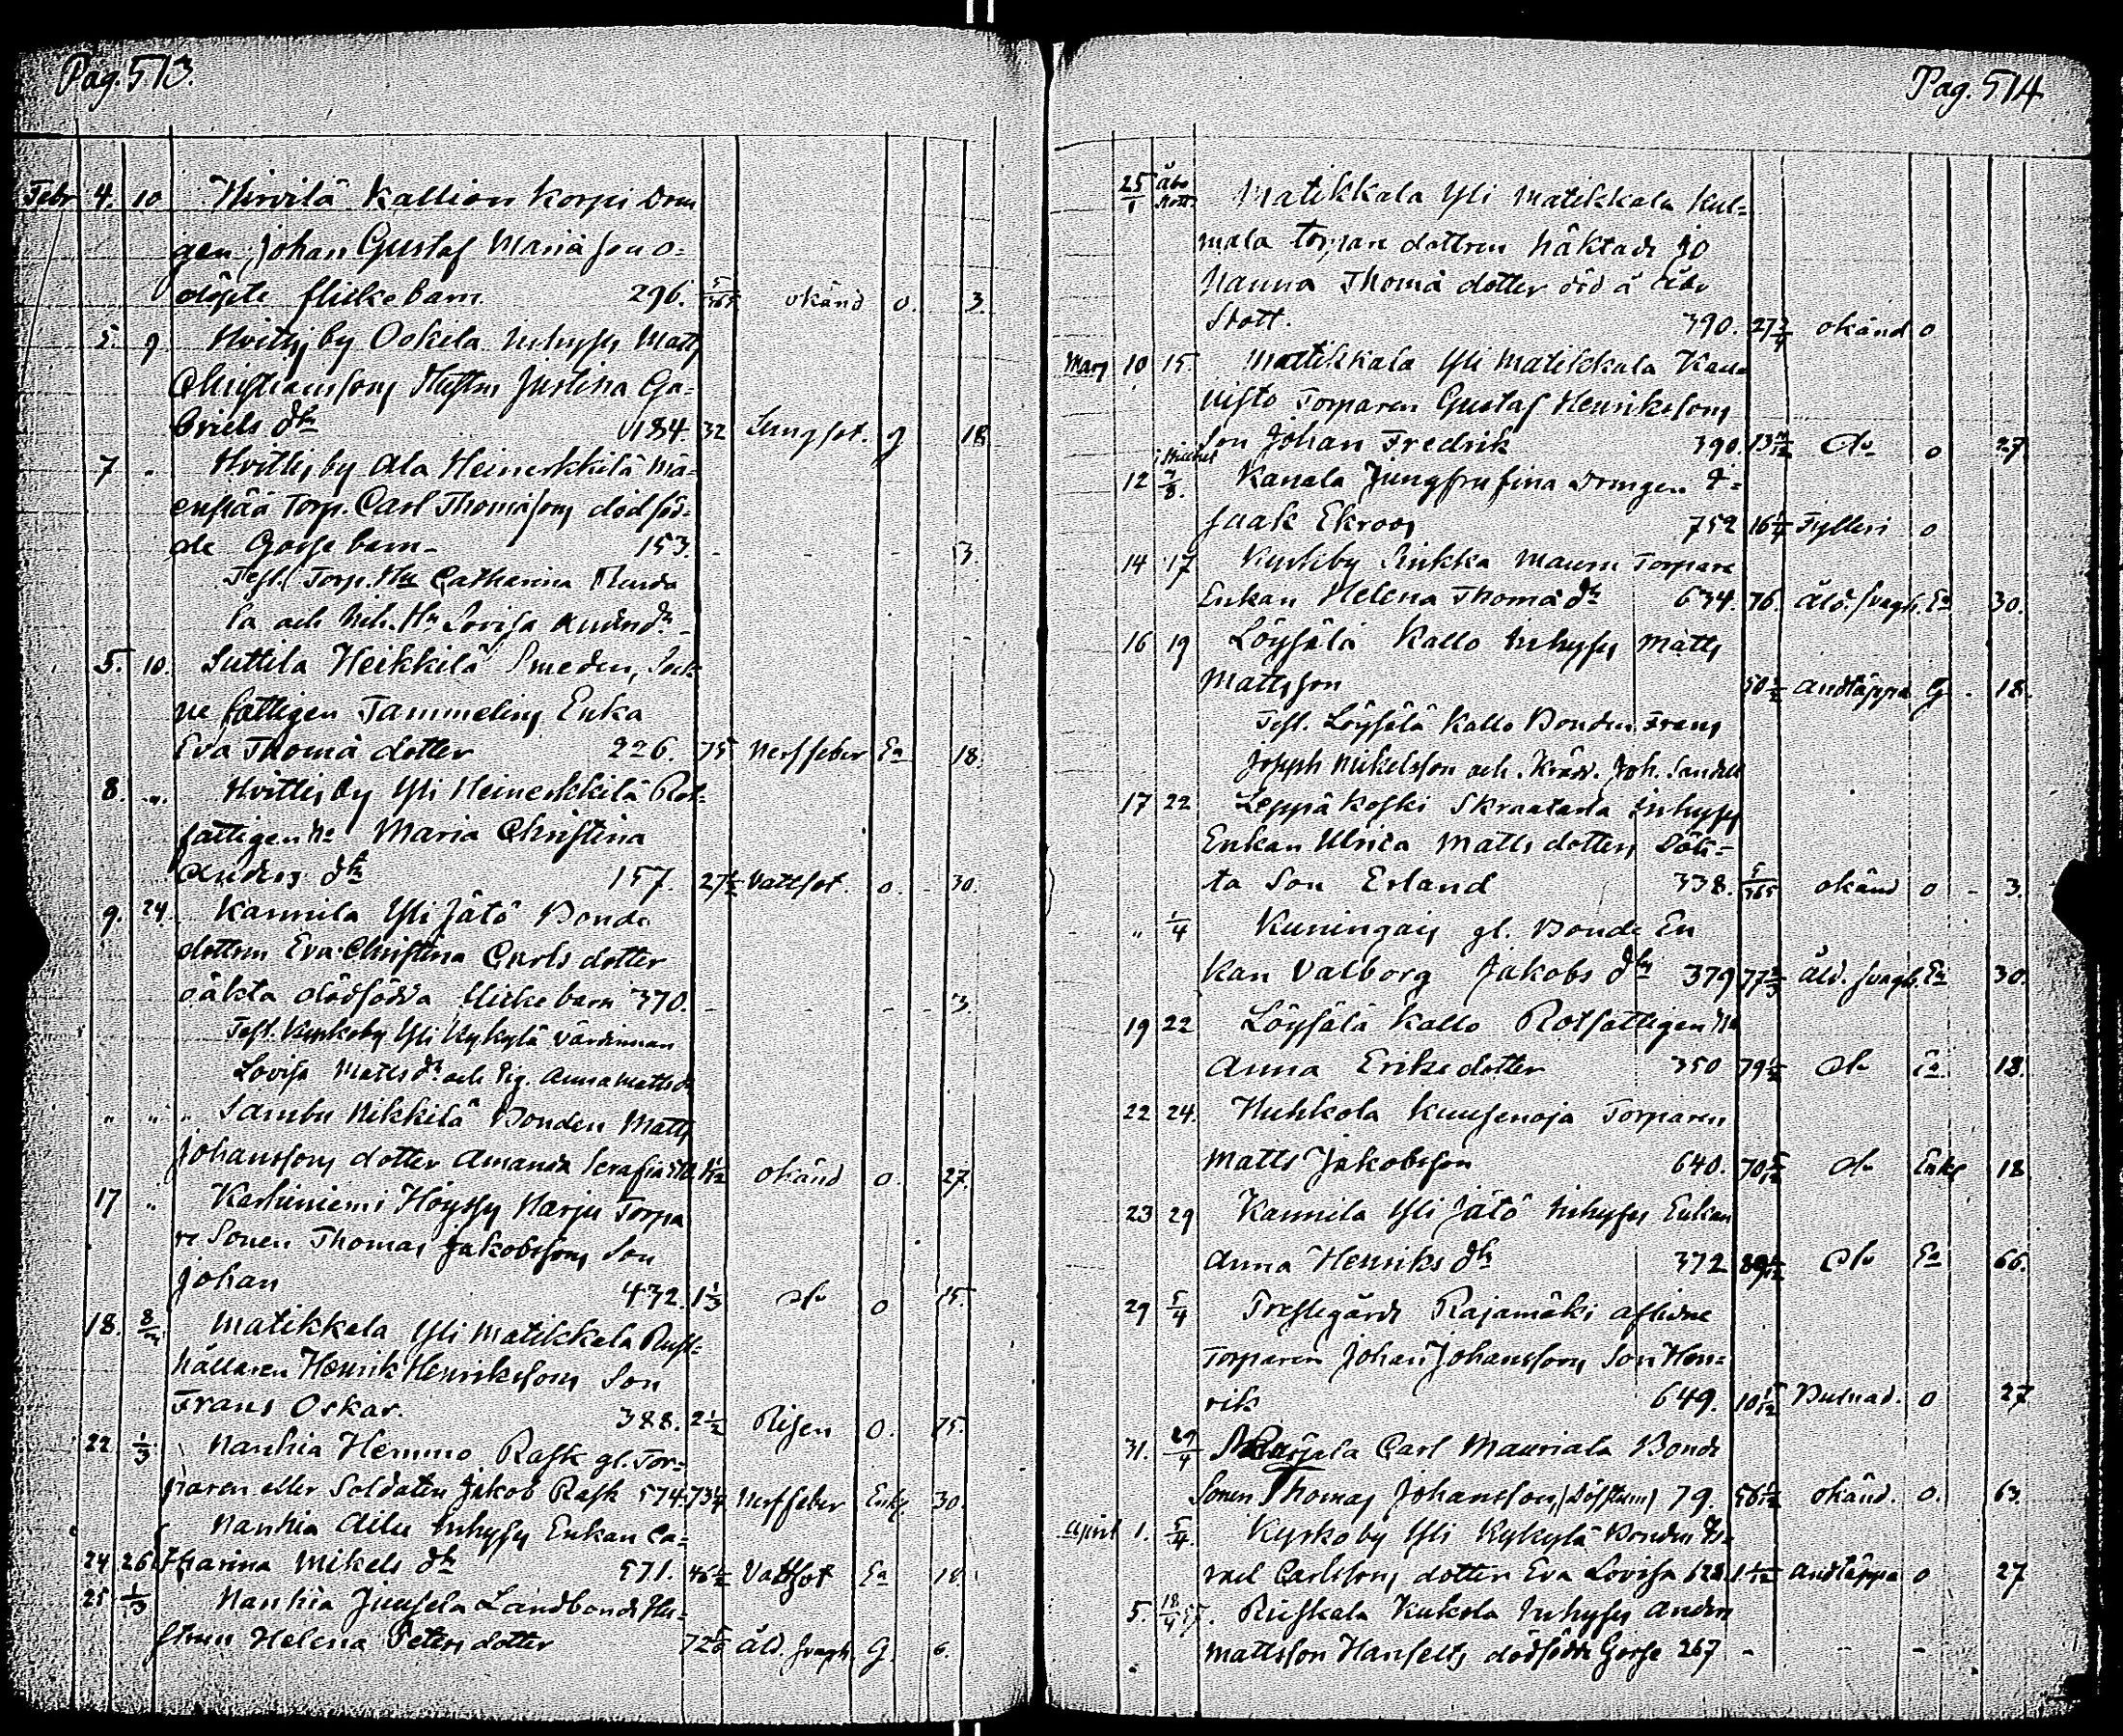 Pag. 513.
Febr 4. 10 Hirvilä Kallion korpi Drän
gen, Johan Gustaf Mariä son o-
döpte flickebarn. 296. 5/365 okänd o. 3.
5. 9 Hvittis by Oskila Inhyses Matts
Christianssons Hustru Justina Ga-
briels dtr 184. 32 Lungsot. g 18
7 " Hvittis by Ala Heinerkkilä Mä-
enpää Torp. Carl Thomasons dödföd-
de Gosse barn - 153. - - - 3.
Test. Torp. Hu Catharina
la och Inh. Hu Lovisa dr
5. 10. Suttila Heikkilä Smeden, Sock
ne fattigen Tammelins Enka
Eva Thomä dotter 226. 75 Nerffeber Ea 18.
8. " Hvittis by Yli Heinerkkilä Rot-
fattigen Na Maria Christina
Anders dtr 157. 27 1/2 Vattsot. o. 30.
9. 24. Kannila Yli Jätö Bonde
dottren Eva Christina Carls dotter
oäkta dödfödda flickebarn 370. - - - 3.
Test. Kyrkoby Yli Kykylä Värdinnan
Lovisa Matts dr och Pig. Anna Matts dr
" " " Sambu Nikkilä Bonden Matts
Johanssons dotter Amanda Serafia okänd o. 27.
17 " Karhiniemi Höyssy Harju Torpa
re Sonen Thomas Jakobssons Son
Johan 432. 1 1/3 do o 15.
18. 8/3 Matikkala Yli Matikkala Rust-
hållaren Henrik Henrikssons Son
Frans Oskar. 388. 2 1/2 Risen o. 15.
22 1/3 Nanhia Hemmo Rask gl. Tor-
paren eller Soldaten Jakob Rask 574. 73 1/4 Nerffeber Enkl. 30.
Nanhia Ailu Inhyses Enkan Ca-
24 26 tharina Mikels dtr 571. 46 1/2 Vattsot Ea 18.
25 1/3 Nanhia Juusela Landbonde Hu-
strun Helena Peters dotter 72 5/6 äld. svagh. G. 6.
Pag. 514
25/1 Åbo Slott Matikkala Yli Matikkala Kul-
mala torpare dottren häktade
Nanna Thomä dotter död å Åbo
Slott. 390. 27 3/4 okänd o
Mars 10 15. Matikkala Yli Matikkala Kau
nisto Torparen Gustaf Henrikssons
Son Johan Fredrik 390. 13 do o 27
12 7/8. Kanala Jungfru fina Drängen I-
saak Ekroos 752 16 1/4 Fylleri o
14 17 Kyrkby Sinkka Mauru Torpare
Enkan Helena Thomä dtr 634. 76. äld. svagh. Ea 30.
16 19 Löysälä Kallo Inhyses Matts
Mattsson 50 1/2 andtäppa G. 18.
Test. Löysälä Kallo Bonden Frans
Joseph Mikelsson och Joh. Sandell
17 22 Leppäkoski Skraatarla Inhyses
Enkan Ulrica Matts dotters Oäk-
ta Son Erland 338. 5/365 okänd o - 3.
" 1/4 Kuningais gl. Bonde En
kan Valborg Jakobs dtr 379 77 2/3 äld. svagh. Ea 30.
19 22 Löysälä Kallo Rotfattigen Na
Anna Eriks dotter 350 79 1/2 do Ea 18.
22 24. Huhkola Kuusenoja Torparen
Matts Jakobsson 640. 70 do Enkl 18
23 29 Kannila Yli Jätö Inhyses Enkan
Anna Henriks dtr 372 do Ea 66.
29 5/4 Prestegårds Rajamäki aflidne
Torparen Johan Johanssons Son Hen-
rik 649. 10 o 27
31. 29/4 Carl Mauriala Bonde
Sonen Thomas Johansson 79. okänd. o. 63.
April 1. 5/4. Kyrkoby Yli Kykylä Bonden Is-
rael Carlssons dotter Eva Lovisa 628. 1 1/12 andtäppa o 27
5. 18/4 Rieskala Kukola Inhyses Anders
Mattsson Hanfelts dödfödde Gosse 267 - - -